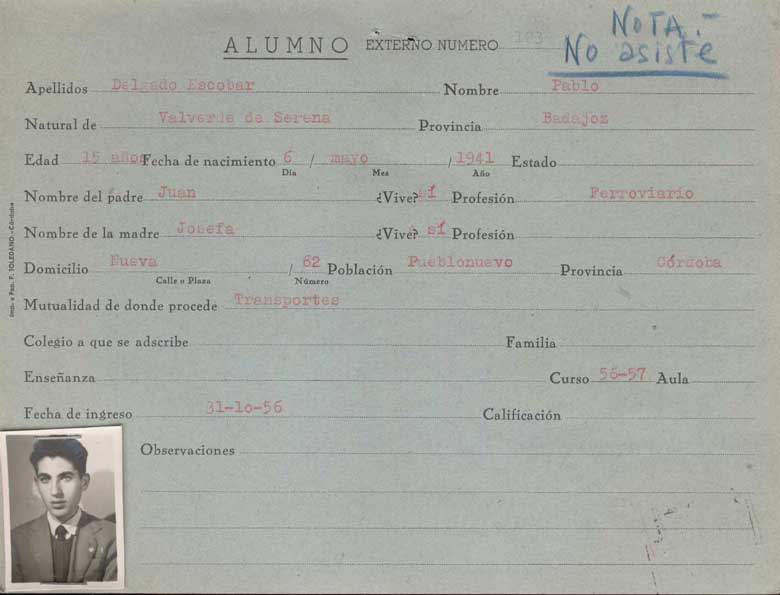 NOTA.-
ALUMNO EXTERNO NUMERO 193 No asiste
Apellidos Delgado Escobar Nombre Pablo
Natural de Valverde de Serena Provincia Badajoz
Edad 15 años Fecha de nacimiento 6 / mayo / 1941 Estado
Día Mes Año
Nombre del padre Juan ¿Vive? sí Profesión Ferroviario
Nombre de la madre Josefa ¿Vive? sí Profesión
Domicilio Nueva / 62 Población Pueblonuevo Provincia Córdoba
Calle o Plaza Número
Mutualidad de donde procede Transportes
Colegio a que se adscribe Familia
Enseñanza Curso 56-57 Aula
Fecha de ingreso 31-10-56 Calificación
Observaciones
Imp. y Pap. F. TOLEDANO.-Córdoba